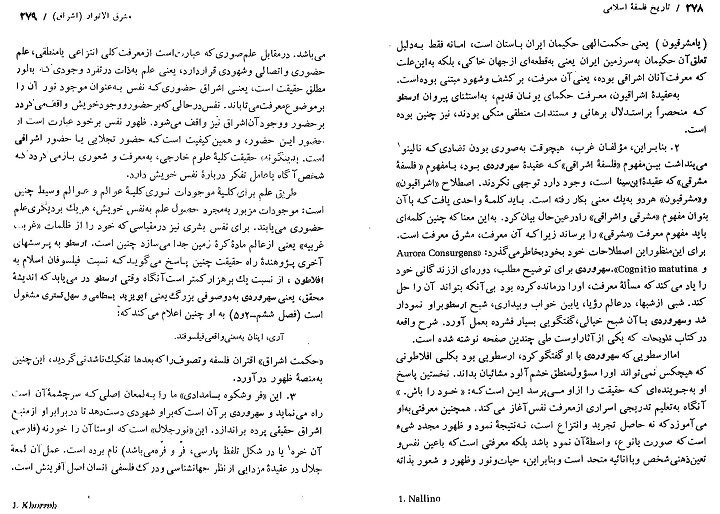 ۲۷۸ / تاریخ فلسفهٔ اسلامی
(یامشرقیون) یعنی حکمت‌الهی حکیمان ایران باستان است، امانه فقط به‌دلیل
تعلق آن حکیمان به‌سرزمین ایران یعنی به‌قطعه‌ای ازجهان خاکی، بلکه به‌این‌علت
که معرفت‌آنان اشراقی بوده، یعنی آن معرفت، برکشف وشهود مبتنی بوده‌است.
به‌عقیدهٔ اشراقیون، معرفت حکمای یونان قدیم، به‌استثنای پیروان ارسطو
که منحصراً براستدلال برهانی و مستندات منطقی متکی بودند، نیز چنین بوده
است.
۲. بنابراین، مؤلفان غرب، هیچوقت به‌صوری بودن تضادی‌که نالینو۱
می‌پنداشت بین‌مفهوم «فلسفهٔ اشراقی» که عقیدهٔ سهروردی بود، بامفهوم «فلسفهٔ
مشرقی» که‌عقیدهٔ ابن‌سینا است، وجود دارد توجهی نکردند. اصطلاح «اشراقیون»
و«مشرقیون» هردو به‌یک معنی بکار رفته است. باید کلمهٔ واحدی یافت که‌باآن
بتوان مفهوم «مشرقی واشراقی» رادرعین‌حال بیان‌کرد. به‌این معناکه چنین کلمه‌ای
باید مفهوم معرفت «مشرقی» را برساند زیراکه آن معرفت، مشرق معرفت است.
برای این‌منظوراین اصطلاحات خود بخودبخاطرمی‌گذرد: «Aurora Consurgens
و Cognitio matutina». سهروردی برای توضیح مطلب، دوره‌ای اززندگانی خود
را یاد می‌کندکه مسألهٔ معرفت، اورا درمانده‌کرده بود بی‌آنکه بتواند آن را حل
کند. شبی ازشبها، درعالم رؤیا، یابین خواب وبیداری، شبح ارسطوبراو نمودار
شد وسهروردی باآن شبح خیالی، گفتگویی بسیار فشرده بعمل آورد. شرح واقعه
درکتاب تلویحات که یکی ازآثاراوست طی چندین صفحه نوشته شده است.
اماارسطویی که سهروردی با او گفتگوکرد، ارسطویی بود بکلی افلاطونی
که‌هیچکس نمی‌تواند اورا مسؤول‌منطق خشم‌آلود مشائیان بداند. نخستین پاسخ
او به‌جوینده‌ای که حقیقت را ازاو می‌پرسد این است‌که: «خود را باش.»
آنگاه به‌تعلیم تدریجی اسراری ازمعرفت نفس‌آغاز می‌کند. همچنین معرفتی‌به‌او
می‌آموزدکه نه حاصل تجرید وانتزاع است، نه‌نتیجهٔ نمود و ظهور مجدد شیء
است‌که صورت یانوع، واسطهٔ‌آن نمود باشد بلکه معرفتی است‌که باعین نفس‌و
تعین‌ذهنی‌شخص وباانائیه متحد است‌وبنابراین، حیات‌ونور وظهور و شعور بذاته
1. Nallino
مشرق الانوار (اشراق) / ۲۷۹
می‌باشد. درمقابل علم‌صوری‌که عبارت‌است ازمعرفت‌کلی انتزاعی یامنطقی، علم
حضوری و اتصالی وشهودی قراردارد، یعنی علم به‌ذات درتفرد وجودی‌که به‌طور
مطلق حقیقت است، یعنی اشراق حضوری که نفس به‌عنوان موجود نور آن را
برموضوع‌معرفت‌می‌تاباند. نفس‌درحالی‌که‌برحضورووجودخویش واقف‌می‌گردد
برحضور ووجودآن‌اشراق نیز واقف می‌شود. ظهور نفس برخود عبارت است از
حضور این حضور، و همین کیفیت است‌که حضور تجلایی یا حضور اشراقی
است. بدینگونه، حقیقت کلیهٔ علوم خارجی، به‌معرفت و شعوری بازمی‌گرددکه
شخص‌آگاه یاعامل تفکر دربارهٔ نفس خویش دارد.
طریق علم برای‌کلیهٔ موجودات نوری‌کلیهٔ عوالم و عوالم وسیط چنین
است: موجودات مزبور به‌مجرد حصول علم به‌نفس خویش، هریک بردیگری‌علم
حضوری می‌یابند. برای نفس بشری نیز درمقیاسی‌که خود را از ظلمات «غربت
غربیه» یعنی ازعالم مادهٔ کرهٔ زمین جدا می‌سازد چنین است. ارسطو به پرسشهای
آخری پژوهندهٔ راه حقیقت چنین پاسخ می‌گوید که نسبت فیلسوفان اسلام به
افلاطون، از نسبت یک برهزارکمتر است‌آنگاه وقتی ارسطو در می‌یابدکه اندیشهٔ
محقق، یعنی سهروردی به‌دوصوفی بزرگ یعنی ابویزید بسطامی و سهل‌تستری مشغول
است (فصل ششم-۲و۵) به او چنین اعلام می‌کندکه:
آری، اینان به‌معنی‌واقعی‌فیلسوفند.
«حکمت اشراق» اقتران فلسفه وتصوف‌راکه‌بعدها تفکیک‌ناشدنی‌گردید، این‌چنین
به‌منصهٔ ظهور درآورد.
۳. این «فر وشکوه بامدادی» ما را به‌لمعان اصلی‌که سرچشمهٔ آن است
راه می‌نماید و سهروردی برآن است‌که‌براو شهودی دست‌دهد تا دربرابراو ازمنبع
اشراق حقیقی پرده براندازد. این «نورجلال» است که اوستاآن را خورنه (فارسی
آن خره۱ یا در شکل تلفظ پارسی، فر و فره‌می‌باشد) نام برده است. عمل‌آن لمعهٔ
جلال در عقیدهٔ مزدایی ازنظر جهانشناسی ودرک فلسفی انسان اصل آفرینش است.
1. Khurrah